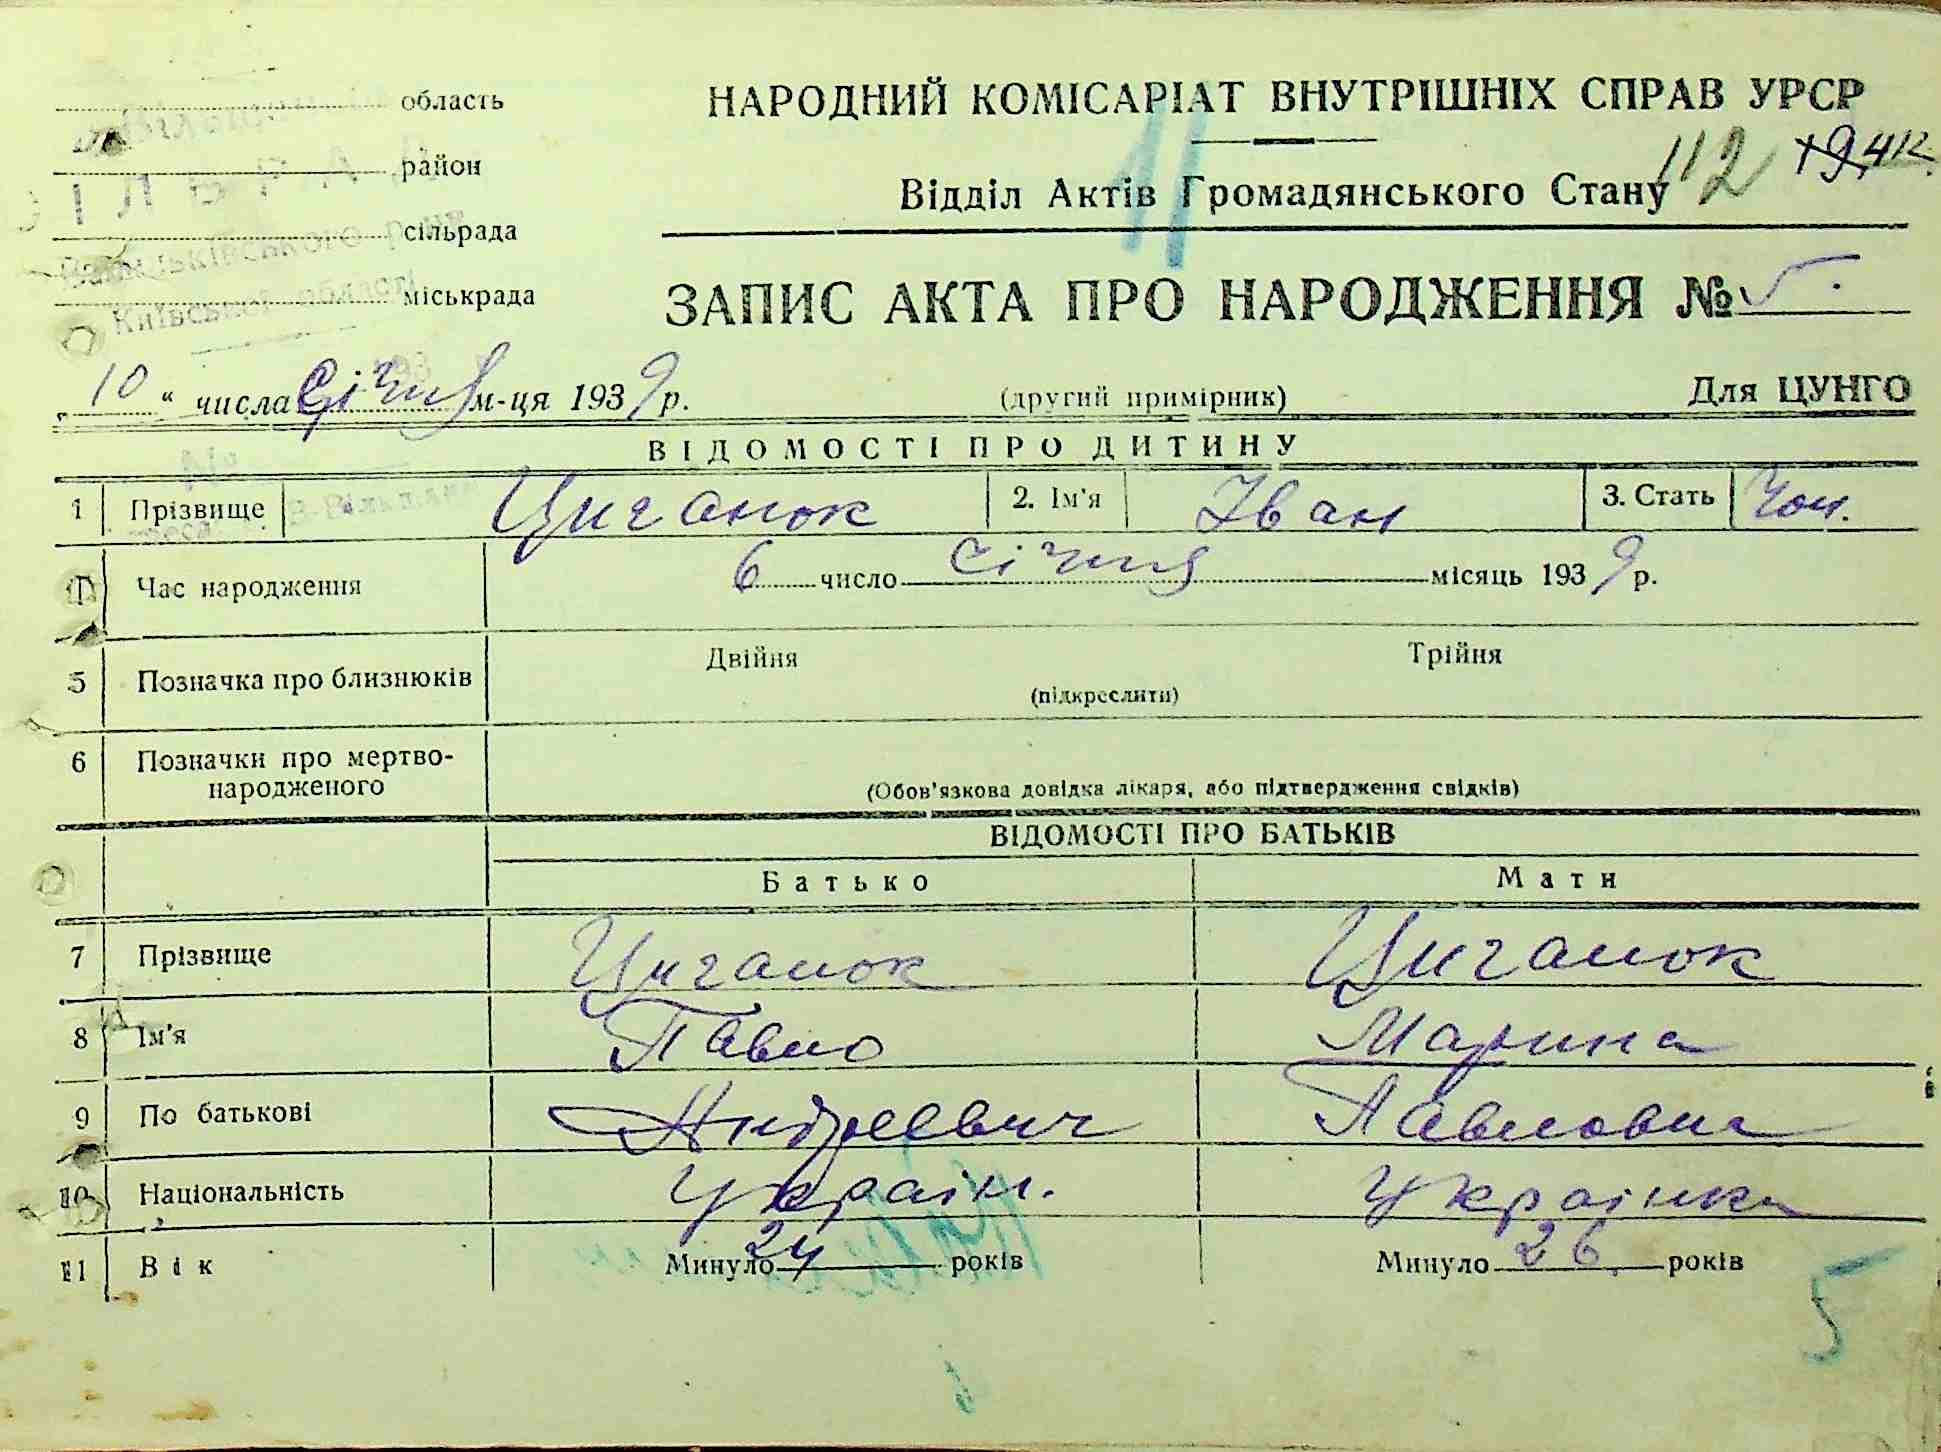 область
район
сільрада
міськрада
СІЛЬРАДА
Васильківського р-ну
Київської області
НАРОДНИЙ КОМІСАРІАТ ВНУТРІШНІХ СПРАВ УРСР
11
112
Відділ Актів Громадянського Стану
ЗАПИС АКТА ПРО НАРОДЖЕННЯ № 5.
„10“ числа Січня м-ця 1939 р.
(другий примірник)
Для ЦУНГО
ВІДОМОСТІ ПРО ДИТИНУ
1 Прізвище Циганок 2. Ім'я Іван 3. Стать Чол.
Час народження 6 число Січня місяць 1939 р.
5 Позначка про близнюків Двійня Трійня
(підкреслити)
6 Позначки про мертво-
народженого
(Обов'язкова довідка лікаря, або підтвердження свідків)
ВІДОМОСТІ ПРО БАТЬКІВ
Батько Мати
7 Прізвище Циганок Циганок
8 Ім'я Павло Марина
9 По батькові Андреевич Павловна
10 Національність Україн. Українка
11 Вік Минуло 24 років Минуло 26 років
5